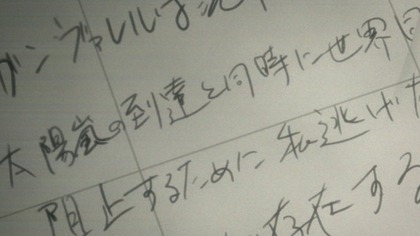 ガンジャレルは
太陽嵐の到達と同時に世界同
阻止するために 私逃げた
存在する